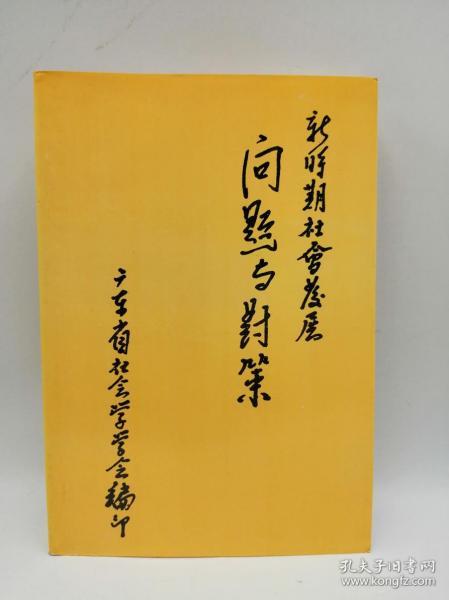 新時期社會發展
问题与對策
广东省社会学学会编印
孔夫子旧书网
www.kongfz.com